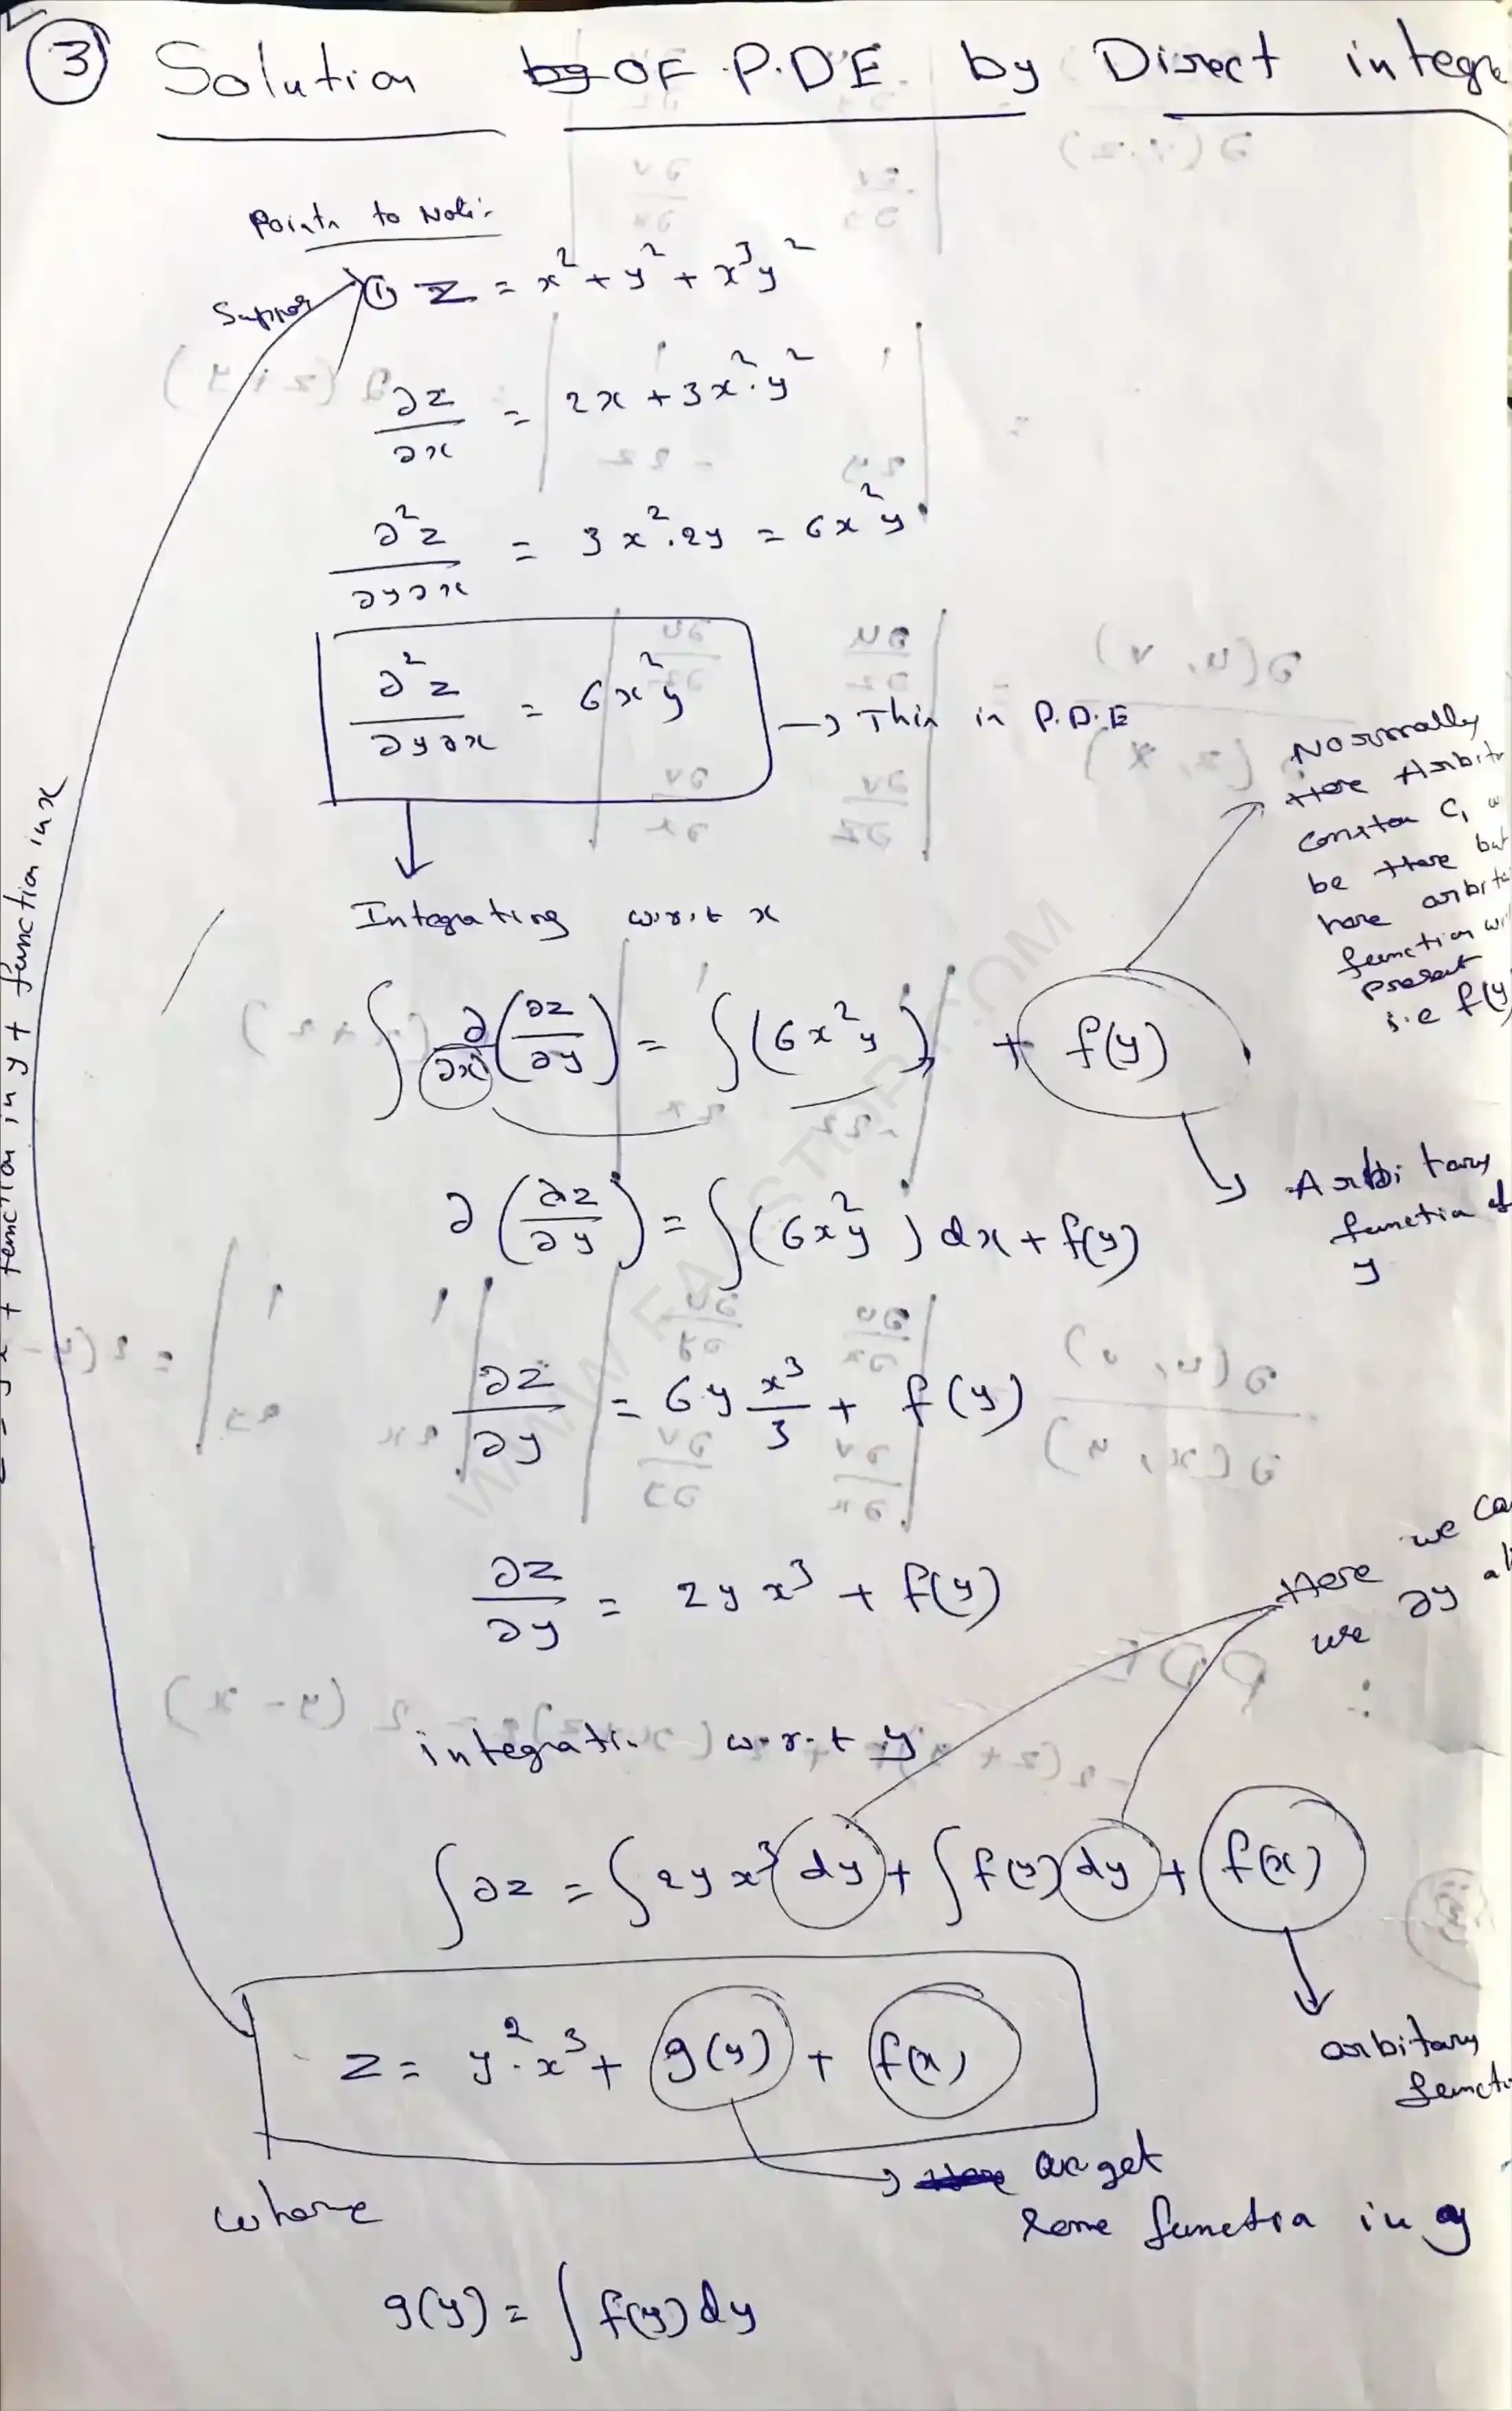 ③ Solution by OF P.D.E by Direct integra
Points to Note:-
Suppos ① z = x² + y² + x³y²
∂z/∂x = 2x + 3x²·y²
∂²z/∂y∂x = 3x²·2y = 6x²y
∂²z/∂y∂x = 6x²y → This is P.D.E
Normally
Here Arbitr
constan C₁ w
be there but
here arbita
function wi
present
i.e f(y
Integrating w.r.t x
∫ ∂/∂x (∂z/∂y) = ∫(6x²y) + f(y)
Arbitary
function of
y
∂(∂z/∂y) = ∫(6x²y) dx + f(y)
∂z/∂y = 6y x³/3 + f(y)
∂z/∂y = 2yx³ + f(y)
Here we ca
use ∂y al
integrati w.r.t y
∫∂z = ∫2yx³ dy + ∫f(y) dy + f(x)
arbitary
functi
z = y²·x³ + g(y) + f(x)
we get
some function in y
where
g(y) = ∫f(y) dy
+ function in y + function in x
WWW.FA